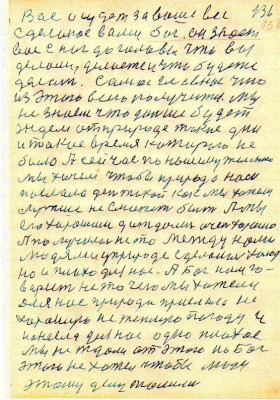 136
Вас осудит за ваше все
сделаное вами Бог. он знает
вас с ног до головы что вы
делали, делаете и что будете
делать. Самое главное что
из этого всего получится. Мы
не знаем что дальше будет
ждем от природе такие дни
и такое время которого не
было А сейчас по нашему только
мы хочем чтобы природа нас
послала ден такой как мы хотим
лучше не сможет быть А мы
его хорошим дождались очен хорошо
А получилось то между нами
людями и природе сделалось хорошо
но и плохо для нас. А Бог нам го-
ворит не то чего мы хотели
для нас природа прислала не
хорошую не теплую погоду и
для нас одно плохое
мы не ждали от этого но Бог
этого не хотел чтобы люди
этому делу